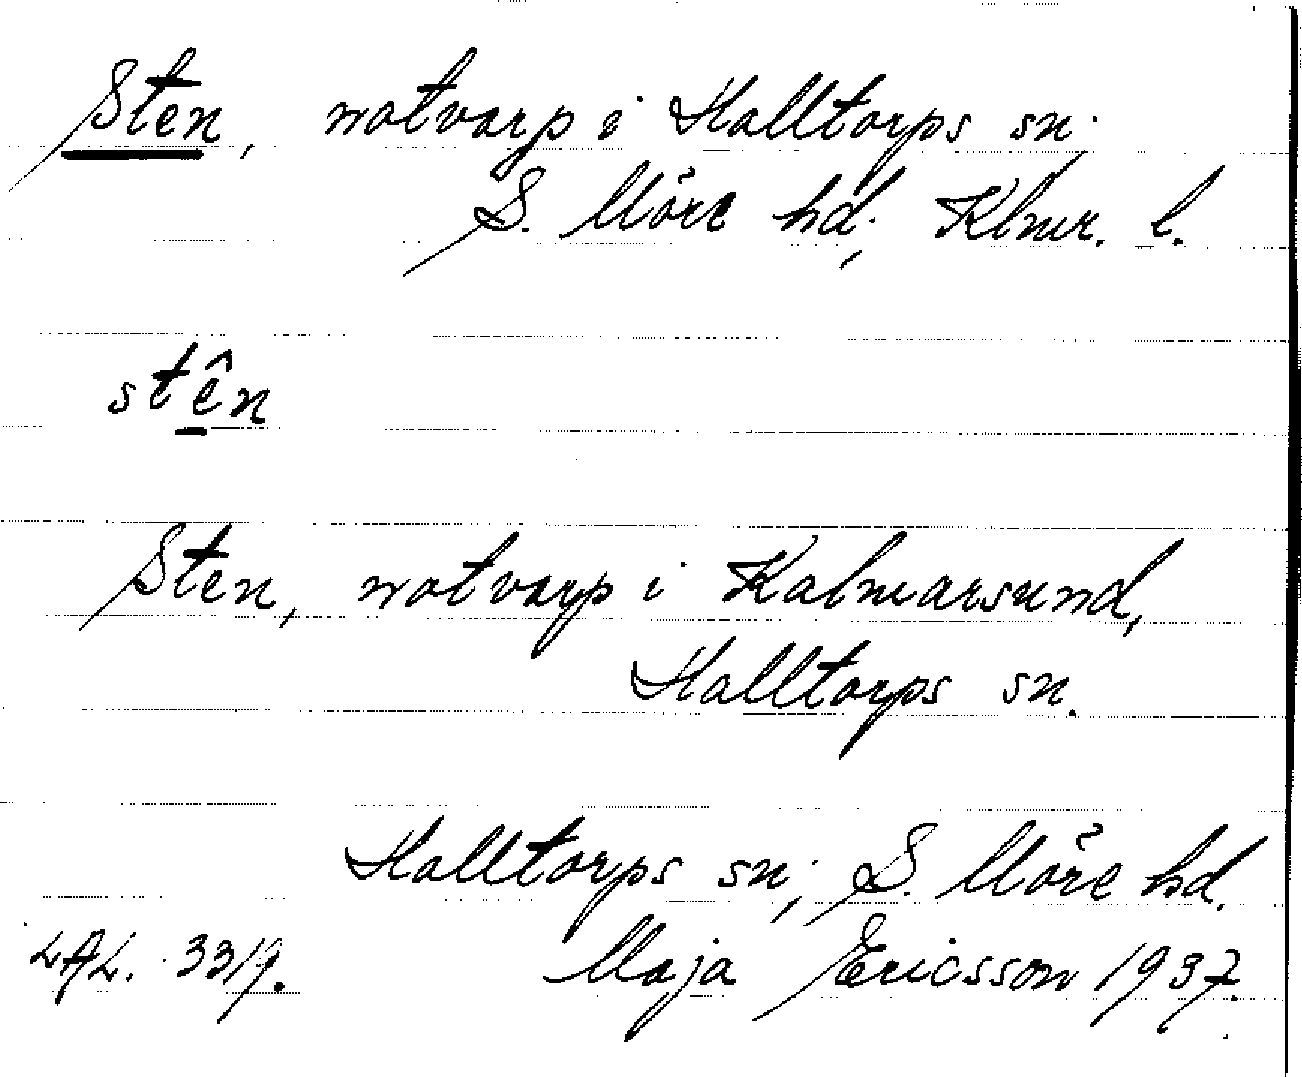 Sten, notvarp i Halltorps sn.,
S. Möre hd., Klmr. l.
stên
Sten, notvarp i Kalmarsund,
Halltorps sn.
Halltorps sn., S. Möre hd.
LAL. 3319. Maja Ericsson 1937.